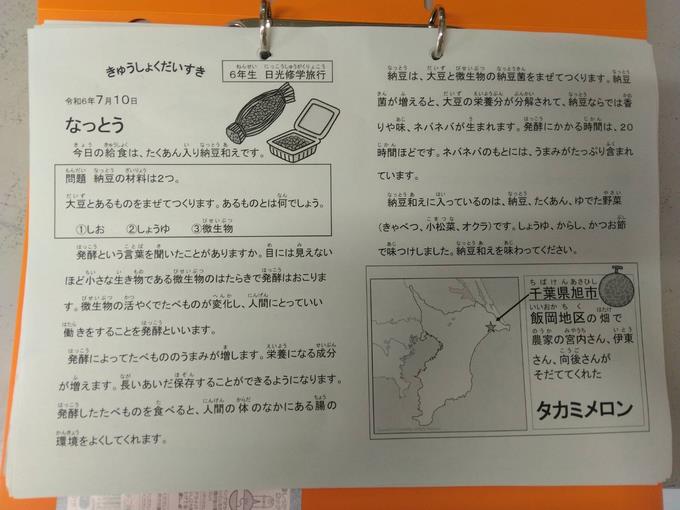 きゅうしょくだいすき
6年生 日光修学旅行
令和6年7月10日
なっとう
今日の給食は、たくあん入り納豆和えです。
問題 納豆の材料は2つ。
大豆とあるものをまぜてつくります。あるものとは何でしょう。
①しお ②しょうゆ ③微生物
発酵という言葉を聞いたことがありますか。目には見えない
ほど小さな生き物である微生物のはたらきで発酵はおこりま
す。微生物の活やくでたべものが変化し、人間にとっていい
働きをすることを発酵といいます。
発酵によってたべもののうまみが増します。栄養になる成分
が増えます。長いあいだ保存することができるようになります。
発酵したたべものを食べると、人間の体のなかにある腸の
環境をよくしてくれます。
納豆は、大豆と微生物の納豆菌をまぜてつくります。納豆
菌が増えると、大豆の栄養分が分解されて、納豆ならでは香
りや味、ネバネバが生まれます。発酵にかかる時間は、20
時間ほどです。ネバネバのもとには、うまみがたっぷり含まれ
ています。
納豆和えに入っているのは、納豆、たくあん、ゆでた野菜
(きゃべつ、小松菜、オクラ)です。しょうゆ、からし、かつお節
で味つけしました。納豆和えを味わってください。
千葉県旭市
飯岡地区の畑で
農家の宮内さん、伊東
さん、向後さんが
そだててくれた
タカミメロン